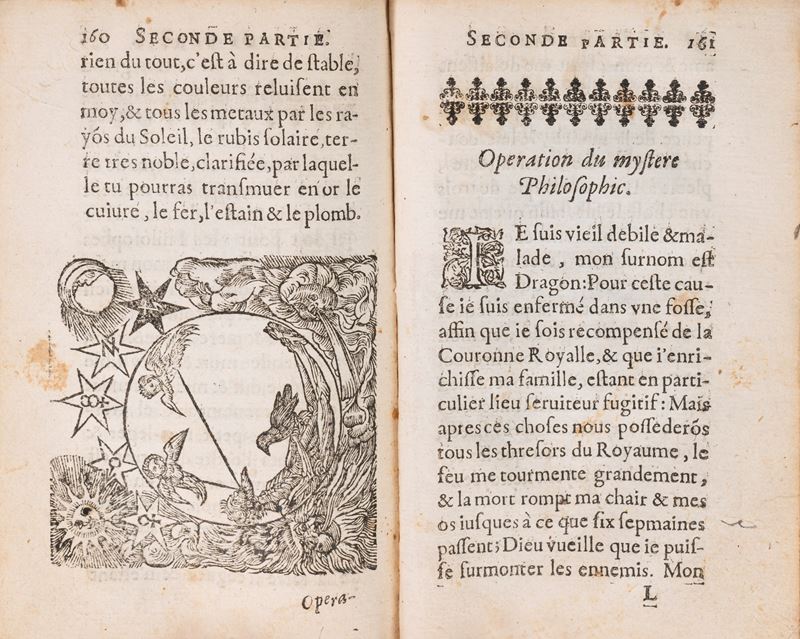 160 SECONDE PARTIE.
rien du tout, c'eſt à dire de ſtable,
toutes les couleurs reluiſent en
moy, & tous les metaux par les ra-
yõs du Soleil, le rubis ſolaire, ter-
re tres noble, clarifiée, par laquel-
le tu pourras tranſmuer en or le
cuiure, le fer, l'eſtain & le plomb.
Opera-
SECONDE PARTIE. 161
Operation du myſtere
Philoſophic.
IE ſuis vieil debile & ma-
lade, mon ſurnom eſt
Dragon: Pour ceſte cau-
ſe ie ſuis enfermé dans vne foſſe,
affin que ie ſois recompenſé de la
Couronne Royalle, & que i'enri-
chiſſe ma famille, eſtant en parti-
culier lieu ſeruiteur fugitif: Mais
apres ces choſes nous poſſederõs
tous les threſors du Royaume, le
feu me tourmente grandement,
& la mort rompt ma chair & mes
os iuſques à ce que ſix ſepmaines
paſſent; Dieu vueille que ie puiſ-
ſe ſurmonter les ennemis. Mon
L